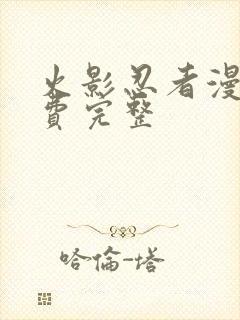 火影忍者漫
费完整
哈倫-塔